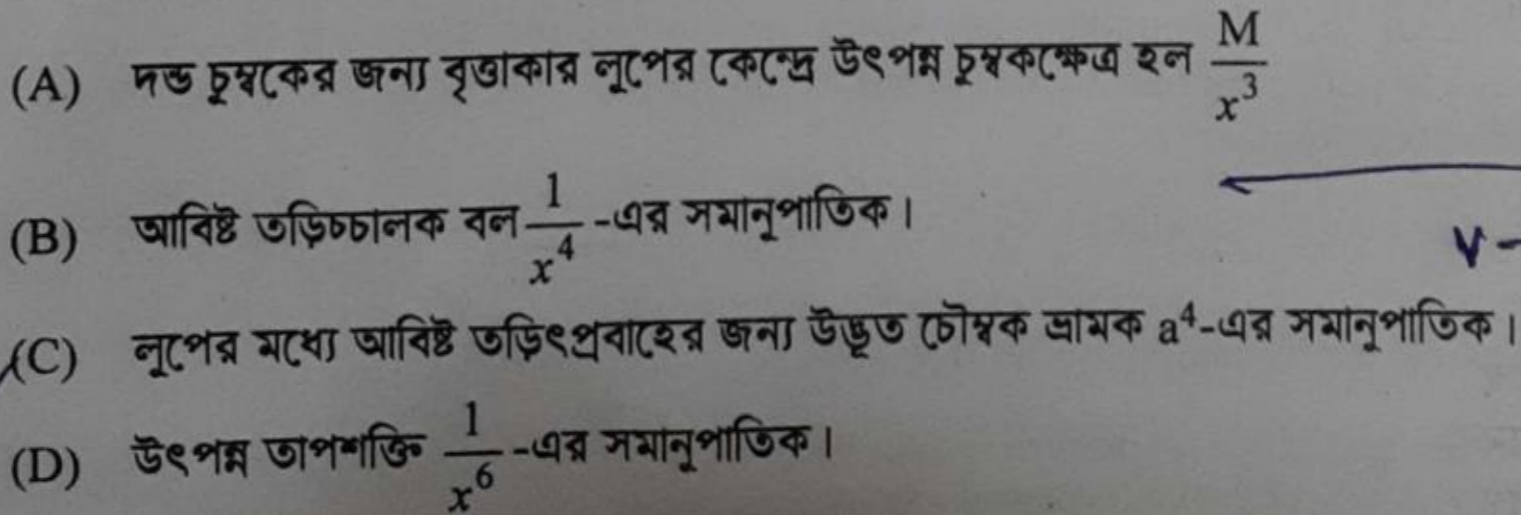 (A) দন্ড চুম্বকের জন্য বৃত্তাকার লুপের কেন্দ্রে উৎপন্ন চুম্বকক্ষেত্র হল M/x³
(B) আবিষ্ট তড়িচ্চালক বল 1/x⁴ -এর সমানুপাতিক।
v -
(C) লুপের মধ্যে আবিষ্ট তড়িৎপ্রবাহের জন্য উদ্ভূত চৌম্বক ভ্রামক a⁴-এর সমানুপাতিক।
(D) উৎপন্ন তাপশক্তি 1/x⁶ -এর সমানুপাতিক।